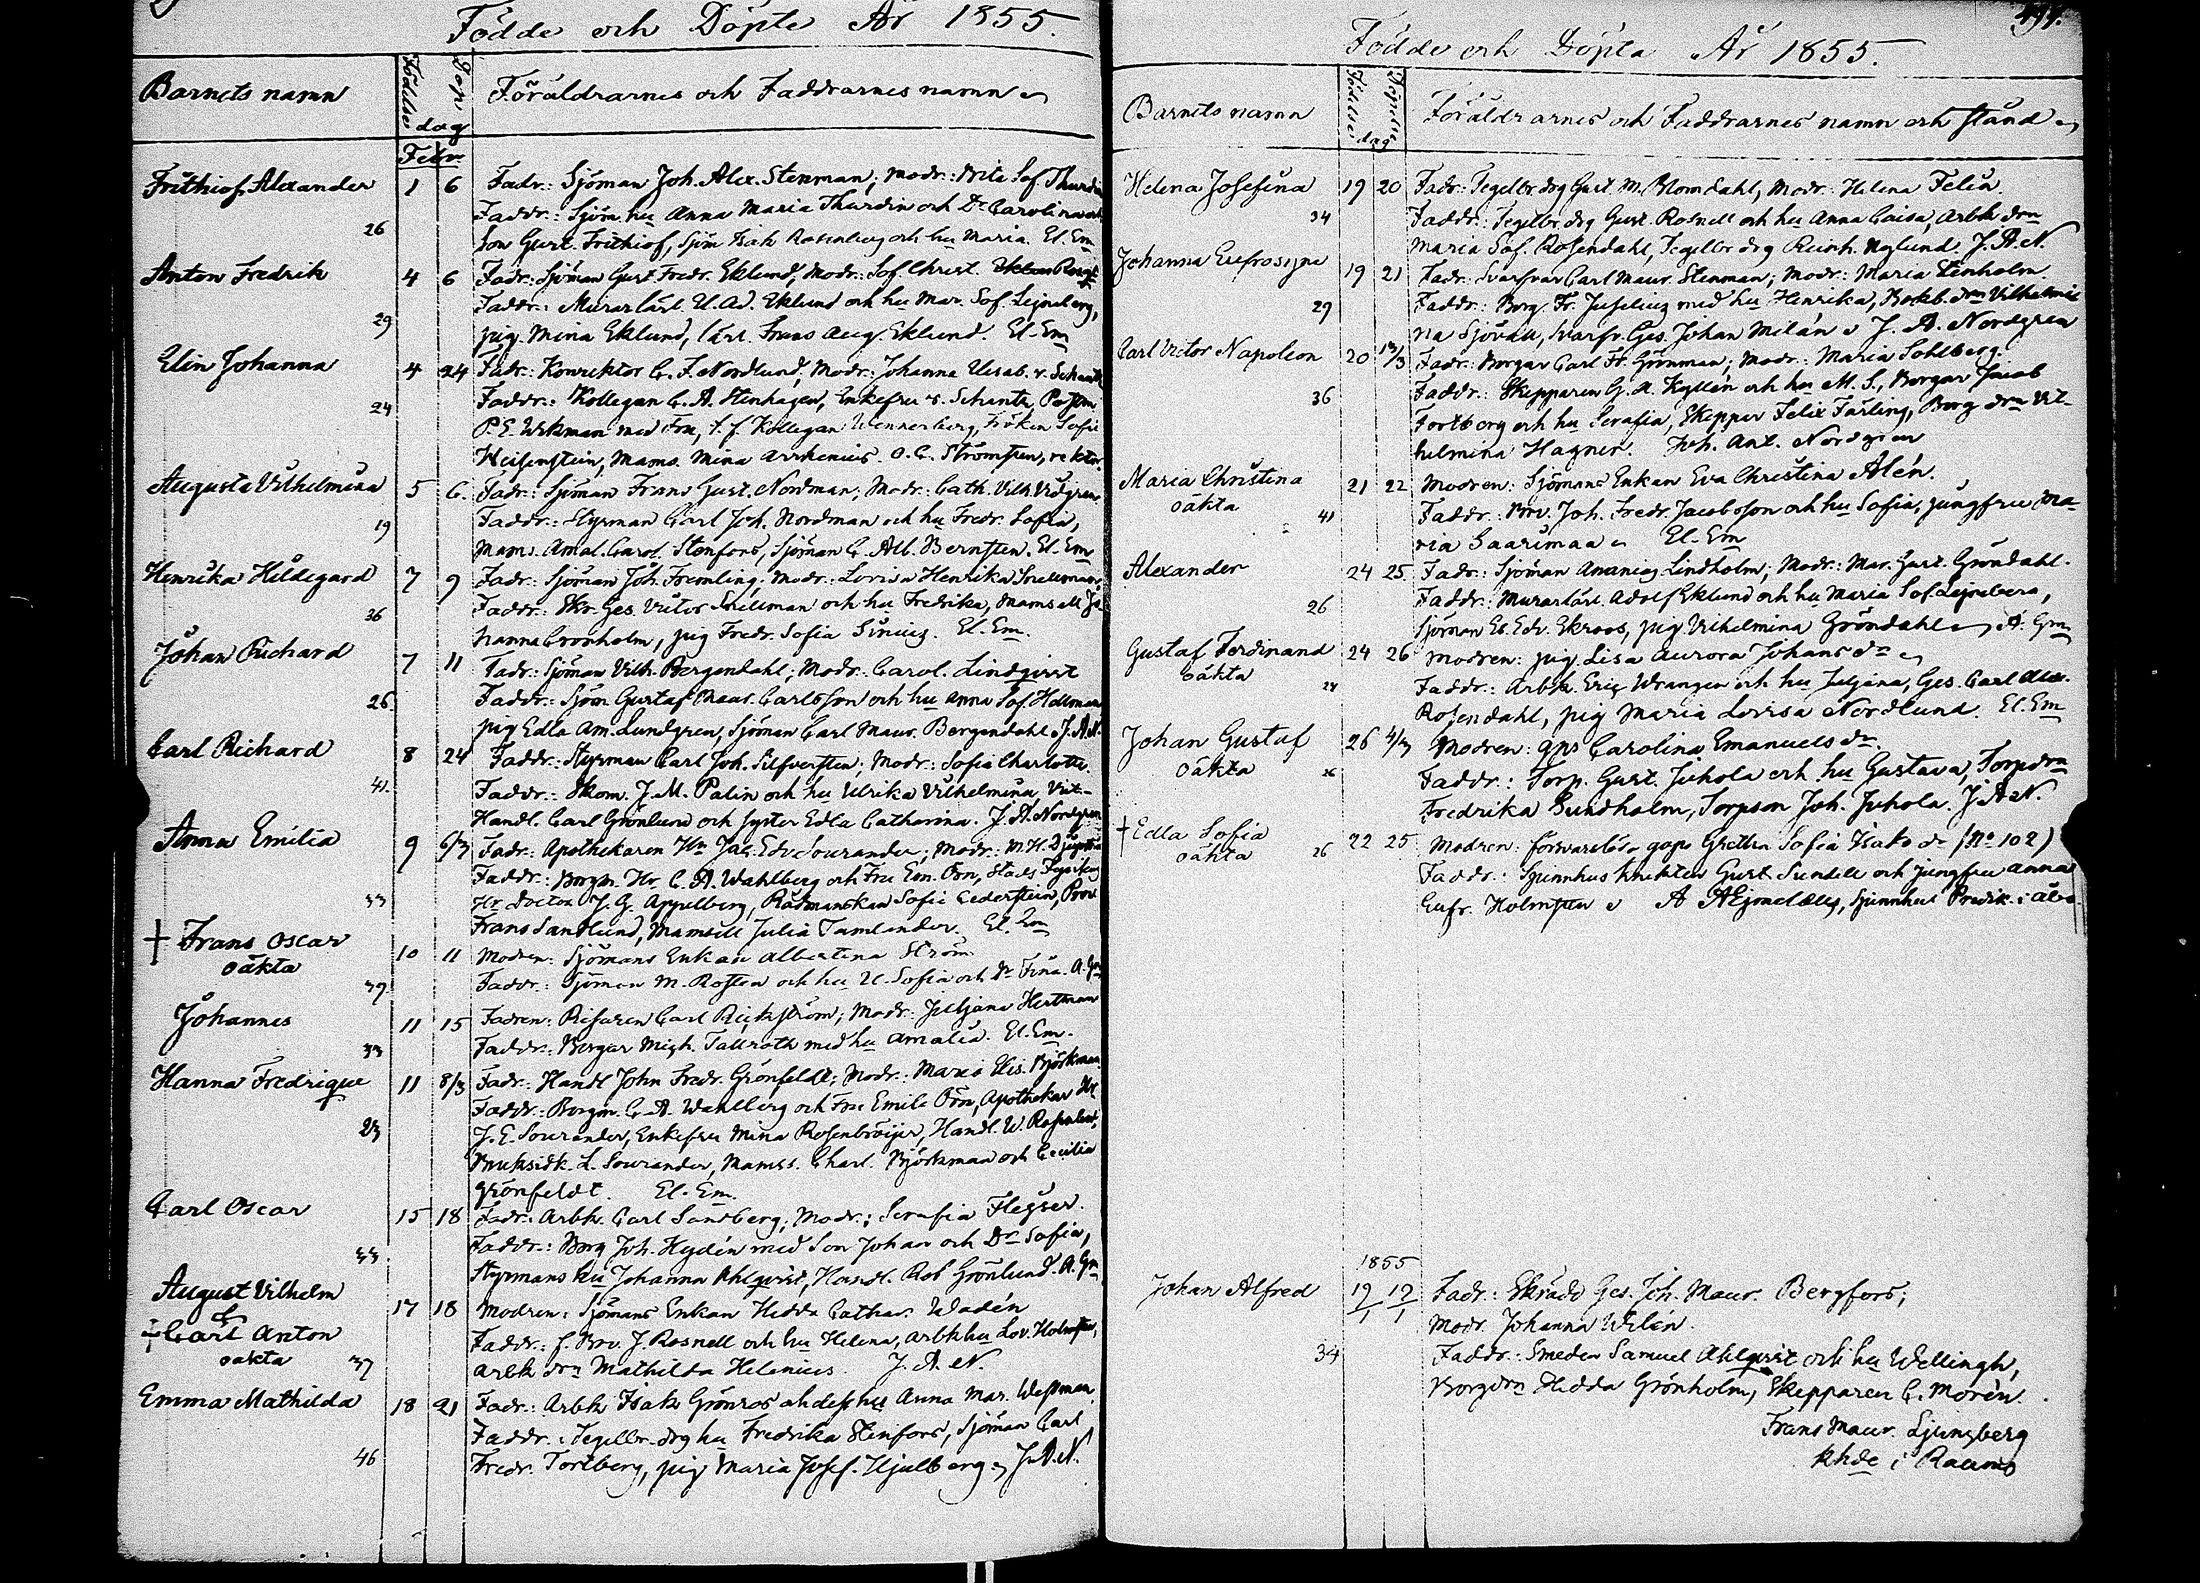 Födde och Döpte År 1855.
Barnets namn
Födelse
Döp
dag
Föräldrarnes och Faddrarnes namn
Febr
Frithiof Alexander 1 6 Fadr: Sjöman Joh. Alex. Stenman; Modr: Brita Sof. Thurdin
Faddr: Sjöm. hu Anna Maria Thurdin och Dr Carolina och
26 Son Gust. Frithiof, Sjöm Isak Rosenberg och hu Maria. El. Em
Anton Fredrik 4 6 Fadr: Sjöman Gust. Fredr. Eklund; Modr: Sof. Christ.
Faddr: Murarlärl. U. Ad. Eklund och hu Mar. Sof. Lejneberg,
29 pig. Mina Eklund, lärl. Frans Aug. Eklund. El. Em
Elin Johanna 4 24 Fadr: Konrektor C. F. Nordlund, Modr: Johanna Ulrsab. v. Schantz
24 Faddr: Kollegan C. A. Stenhagen, Enkefru v. Schantz, Past.
P. E. Wekman med Fru, t. f. Kollegan Wennerberg, Fröken Sofie
Heisenstein, Mams. Mina Arrhenius. O. C. Strömsten, rektor
Augusta Vilhelmina 5 6 Fadr: Sjöman Frans Gust. Nordman. Modr: Cath. Vilh. Vidgren
19 Faddr: Styrman Carl Joh. Nordman och hu Fredr. Sofia,
Mams. Amal. Carol. Stenfors, Sjöman C. Alb. Bernsten. El. Em
Henrika Hildegard 7 9 Fadr: Sjöman Joh. Fremling; Modr: Lovisa Henrika Snellman
36 Faddr: Skr. Ges. Victor Snellman och hu Fredrika, Mamsell Jo
hanna Cronholm, pig Fredr. Sofia Sinius. El. Em.
Johan Richard 7 11 Fadr: Sjöman Vilh. Bergendahl; Modr: Carol. Lindqvist
26 Faddr: Sjöm Gustaf Maur. Carlsson och hu Anna Sof. Hollmen
pig Edla Am. Lundgren, Sjöman Carl Maur. Bergendahl. J. A. N.
Carl Richard 8 24 Faddr: Styrman Carl Joh. Silfversten; Modr: Sofia Charlotta.
41. Faddr: Skom. J. M. Palin och hu Ulrika Vilhelmina, Vikt-
Handl. Carl Grönlund och syster Edla Catharina. J. A. Nordgren
Anna Emilia 9 6/3 Fadr: Apothekaren Hr Jac. Edv. Sourander; Modr: M. H.
Faddr: Borgm. Hr C. A. Wahlberg och Fru Em. Örn, Stads Fysikus
33 Hr Doctor J. G. Appelberg, Rådmanskan Sofie Cederstein, Prov
Frans Sandlund, Mamsell Julia Tamlander. El. Em
† Frans Oscar 10 11 Modren: Sjömans Enkan Albertina Ström
oäkta
39 Faddr: Sjöman M. Rosten och hu U. Sofia och Dr Fina. A. Gm
Johannes 11 15 Fadren: Resaren Carl Rickström; Modr: Juljana Hertman
33 Faddr: Borgar Mich. Tallroth med hu Amalia. El. Em.
Hanna Fredrique 11 8/3 Fadr: Handl John Fredr. Grönfeldt; Modr: Maria Elis. Björkman
Faddr: Borgm. C. A. Wahlberg och Fru Emile Örn, Apothekar Hr
23 J. E. Sourander, Enkefru Mina Rosenbröijer, Handl. W. Rosenlew,
Bruksidk. L. Sourander, Mamss. Charl. Björkman och Cecilia
Grönfeldt. El. Em.
Carl Oscar 15 18 Fadr: Arbk. Carl Sandberg; Modr.: Serafia Flegser.
33. Faddr: Borg Joh. Hydén med Son Johan och Dr Sofia,
Styrmans hu Johanna Ahlqvist, Handl. Rob Grönlund. A. Gm
August Vilhelm 17 18 Modren: Sjömans Enkan Hedda Cathar. Wadén
&
† Carl Anton Faddr: f. Brv. J. Rosnell och hu Helena, Arbk hu Lov. Holmsten,
oäkta 37 Arbk drn Mathilda Helenius. J. A. N.
Emma Mathilda 18 21 Fadr: Arbk Isak Grönros ah dess hu Anna Mar. Westman
Faddr: Tegelbr. drg hu Fredrika Stenfors, Sjöman Carl
46 Fredr. Tortberg, pig Maria Josef. Hjulberg. J. A. N.
Födde och Döpta År 1855.
Barnets namn
Födelse
Döpelse
dag
Föräldrarnes och Faddrarnes namn och stånd
Helena Josefina 19 20 Fadr: Tegelbr drg Gust. M. Blomdahl, Modr: Helena Felin.
34 Faddr: Tegelbr. drg Gust. Rosnell och hu Anna Caisa, Arbk drn
Maria Sof. Rosendahl, Tegelbr drg Reinh. Nylund J. A. N.
Johanna Eufrosyne 19 21 Fadr: Svarfvar Carl Maur. Stenman; Modr: Maria Stenholm
29 Faddr: Borg. Fr. Juselius med hu Henrika, Bokb. drn Vilhelmi
na Sjövall, Svarfv. Ges. Johan Milán J. A. Nordgren
Carl Victor Napoleon 20 13/3 Fadr: Borgar Carl Fr. Grönman; Modr: Maria Sohlberg.
36 Faddr: Skepparen G. A. Kyllén och hu M. S., Borgar Jacob
Fortborg och hu Serafia, Skeppar Felix Färling, Borg drn Vil-
helmina Hagner. Joh. Ant. Nordgren
Maria Christina 21 22 Modren: Sjömans Enkan Eva Christina Alén.
oäkta 41 Faddr: Brv. Joh. Fredr. Jacobsson och hu Sofia, jungfru Ma-
ria Saarimaa El. Em
Alexander 24 25 Fadr: Sjöman Ananias Lindholm; Modr: Mar. Gust. Gröndahl.
26 Faddr: Murarlärl. Adolf Eklund och hu Maria Sof. Lejneberg,
Sjöman El. Edv. Ekroos, pig Vilhelmina Gröndahl A. Gm
Gustaf Ferdinand 24 26 Modren: pig Lisa Aurora Johansdr
oäkta 28 Faddr: Arbk. Eric Wrangen och hu Juljana, Ges. Carl Alex.
Rosendahl, pig Maria Lovisa Nordlund. El. Em
Johan Gustaf 26 4/3 Modren: qps Carolina Emanuelsdr
oäkta 26 Faddr: Torp. Gust. Juhola och hu Gustava, Torpdrn
Fredrika Sundholm, Torpson Joh. Juhola. J. A. N.
† Edla Sofia 22 25 Modren: försvarslösa qvps Gretha Sofia Isaks dr (No 102)
oäkta 26 Faddr: Spinnhus knekten Gust. Sundell och jungfru Anna
Eufr. Holmsten A Spinnhus Predik. i Åbo.
1855
Johan Alfred 19/1 19/1 Fadr: Skrädd Ges. Joh. Maur. Bergfors;
Modr. Johanna Welén.
34 Faddr: Smeden Samuel Ahlqvist och hu Wellingh,
Borgdrn Hedda Grönholm, Skepparen C. Morén.
Frans Maur. Ljungberg
Khde i Raumo